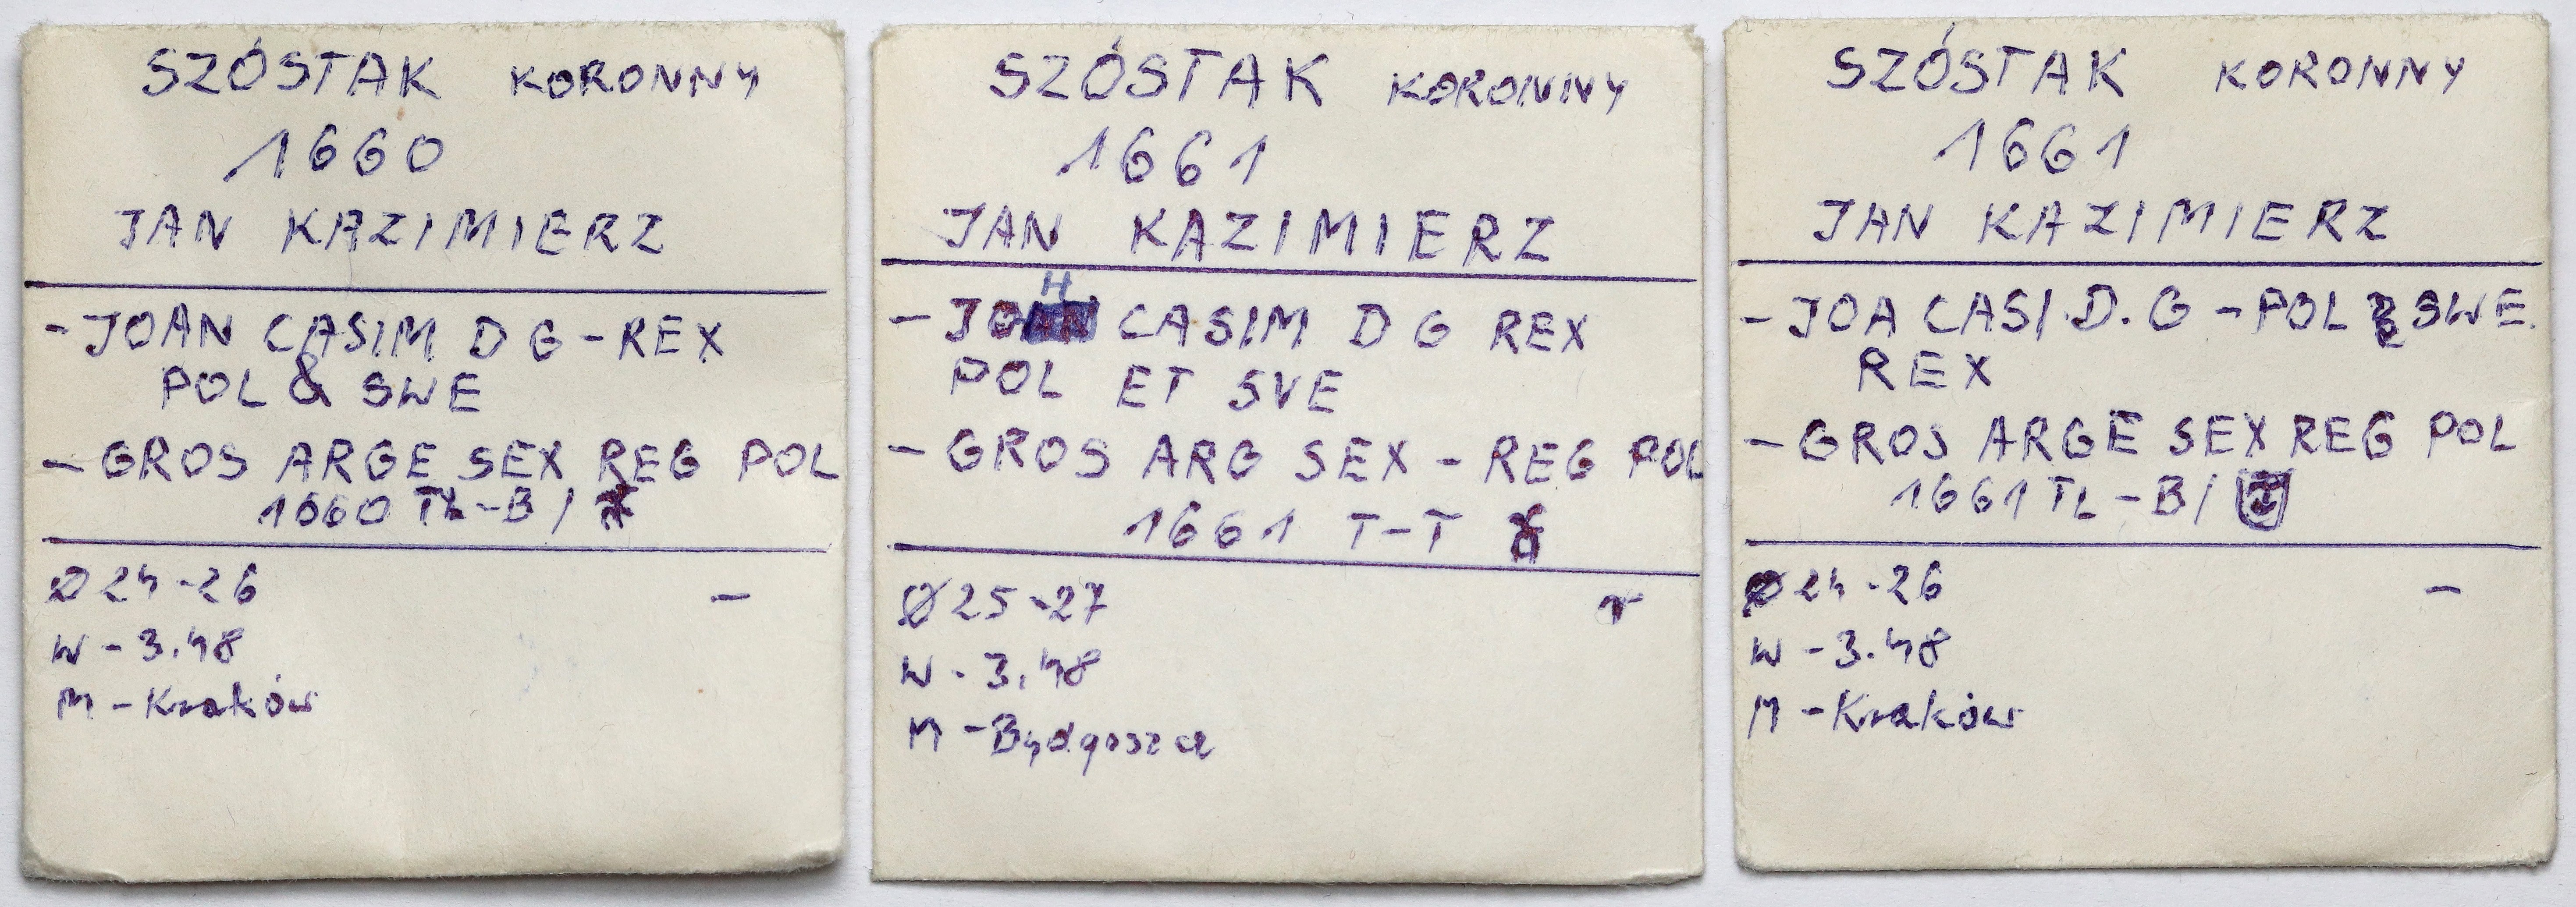 SZÓSTAK KORONNY
1660
JAN KAZIMIERZ
- JOAN CASIM D G - REX
POL & SWE
- GROS ARGE SEX REG POL
1660 TL - B /
Ø 24 - 26 -
W - 3.48
M - Kraków
SZÓSTAK KORONNY
1661
JAN KAZIMIERZ
H
- JO CASIM D G REX
POL ET SVE
- GROS ARG SEX - REG POL
1661 T - T
Ø 25 - 27
W - 3.48
M - Bydgoszcz
SZÓSTAK KORONNY
1661
JAN KAZIMIERZ
- JOA CASI. D. G - POL & SWE.
REX
- GROS ARGE SEX REG POL
1661 TL - B /
Ø 24 - 26 -
W - 3.48
M - Kraków